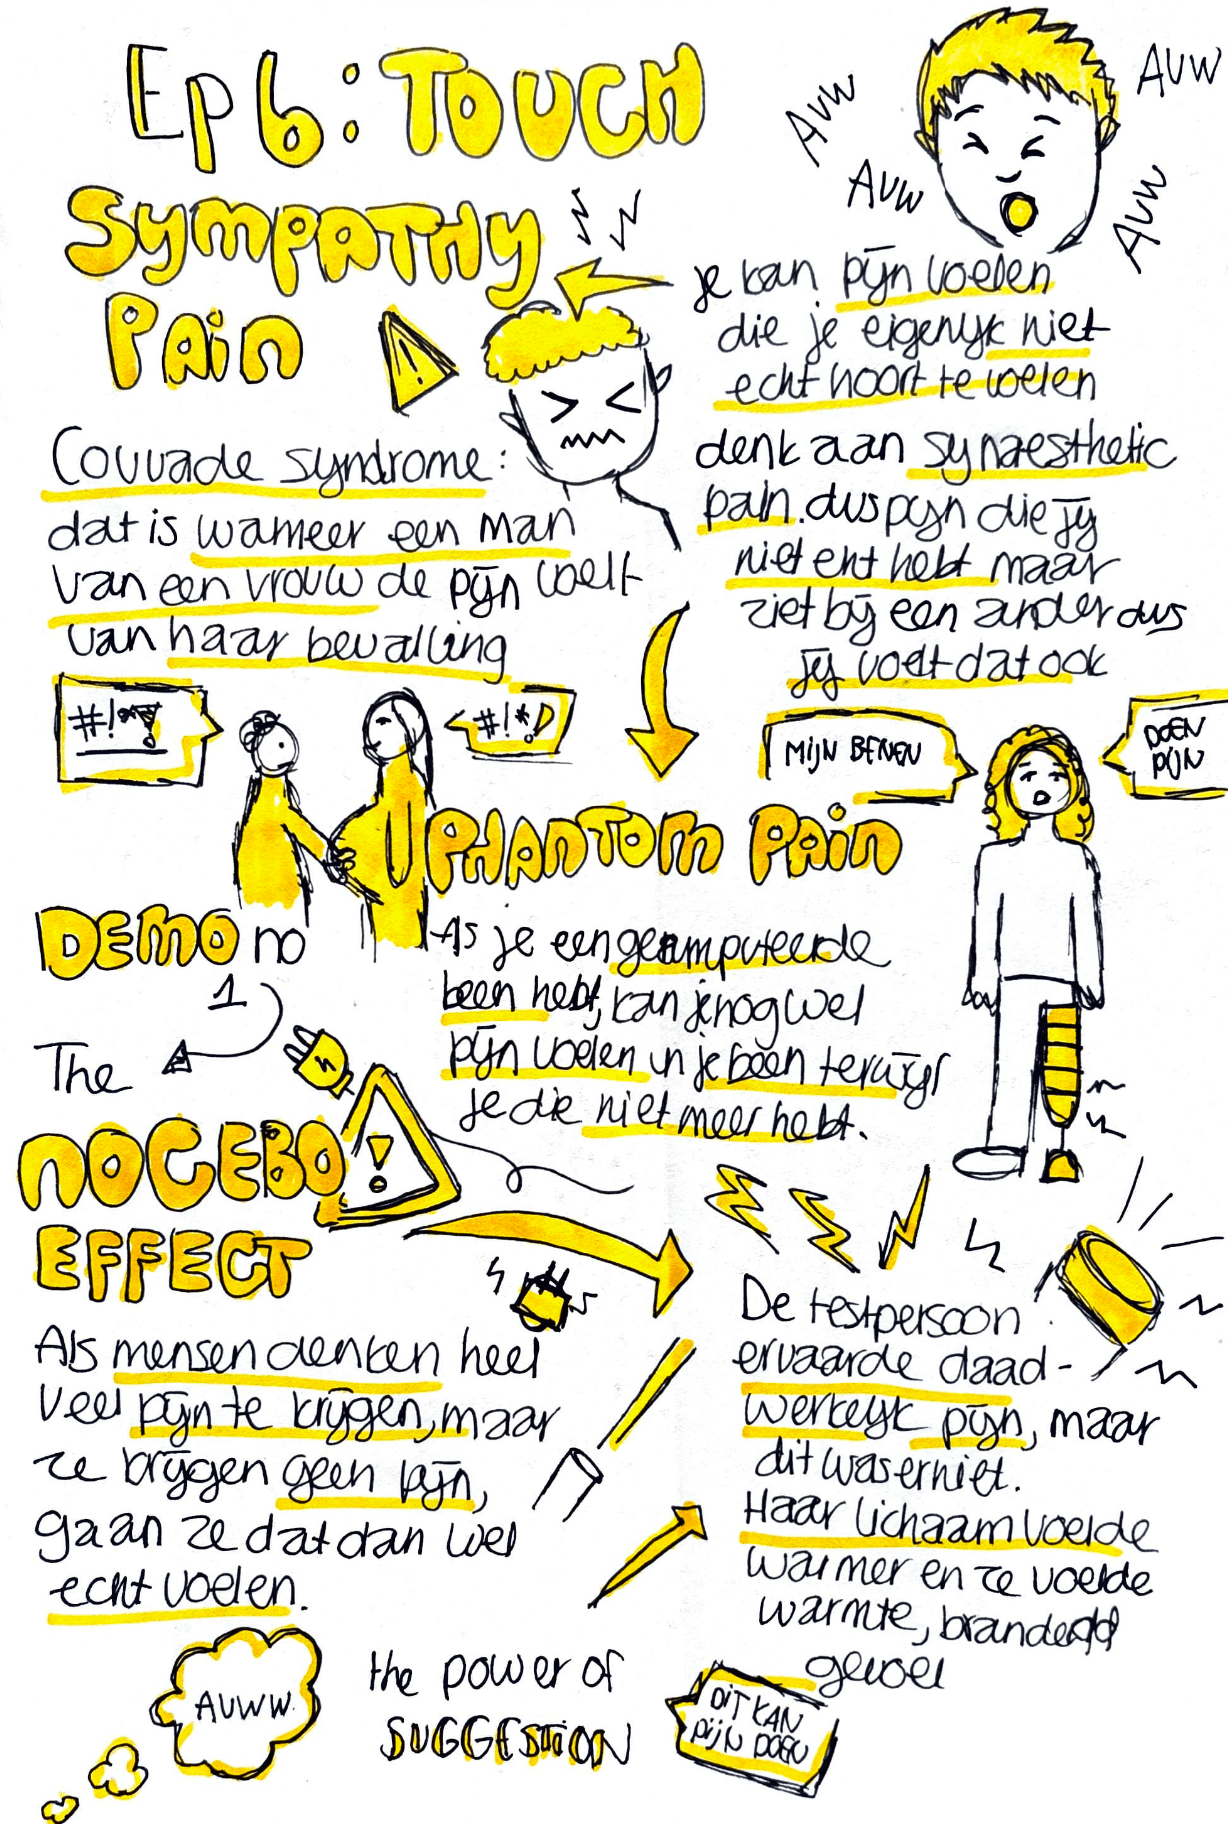 Ep 6: TOUCH
AUW
AUW
AUW
AUW
SYMPATHY
PAIN
!
je kan pijn voelen
die je eigenlijk niet
echt hoort te voelen
denk aan synaesthetic
pain. dus pijn die jij
niet ent hebt maar
ziet bij een ander dus
jij voelt dat ook
Couvade syndrome:
dat is wanneer een man
van een vrouw de pijn voelt
van haar bevalling
#!*?!
#!*!?
MIJN BENEN
DOEN
PIJN
PHANTOM PAIN
Als je een geamputeerde
been hebt, kan je nog wel
pijn voelen in je been terwijl
je die niet meer hebt.
DEMO no
1
The
NOCEBO
!
EFFECT
Als mensen denken heel
veel pijn te krijgen, maar
ze krijgen geen pijn,
gaan ze dat dan wel
echt voelen.
De testpersoon
ervaarde daad-
werkelijk pijn, maar
dit was er niet.
Haar lichaam voelde
warmer en ze voelde
warmte, brandend
gevoel
AUWW.
the power of
SUGGESTION
DIT KAN
PIJN DOEN